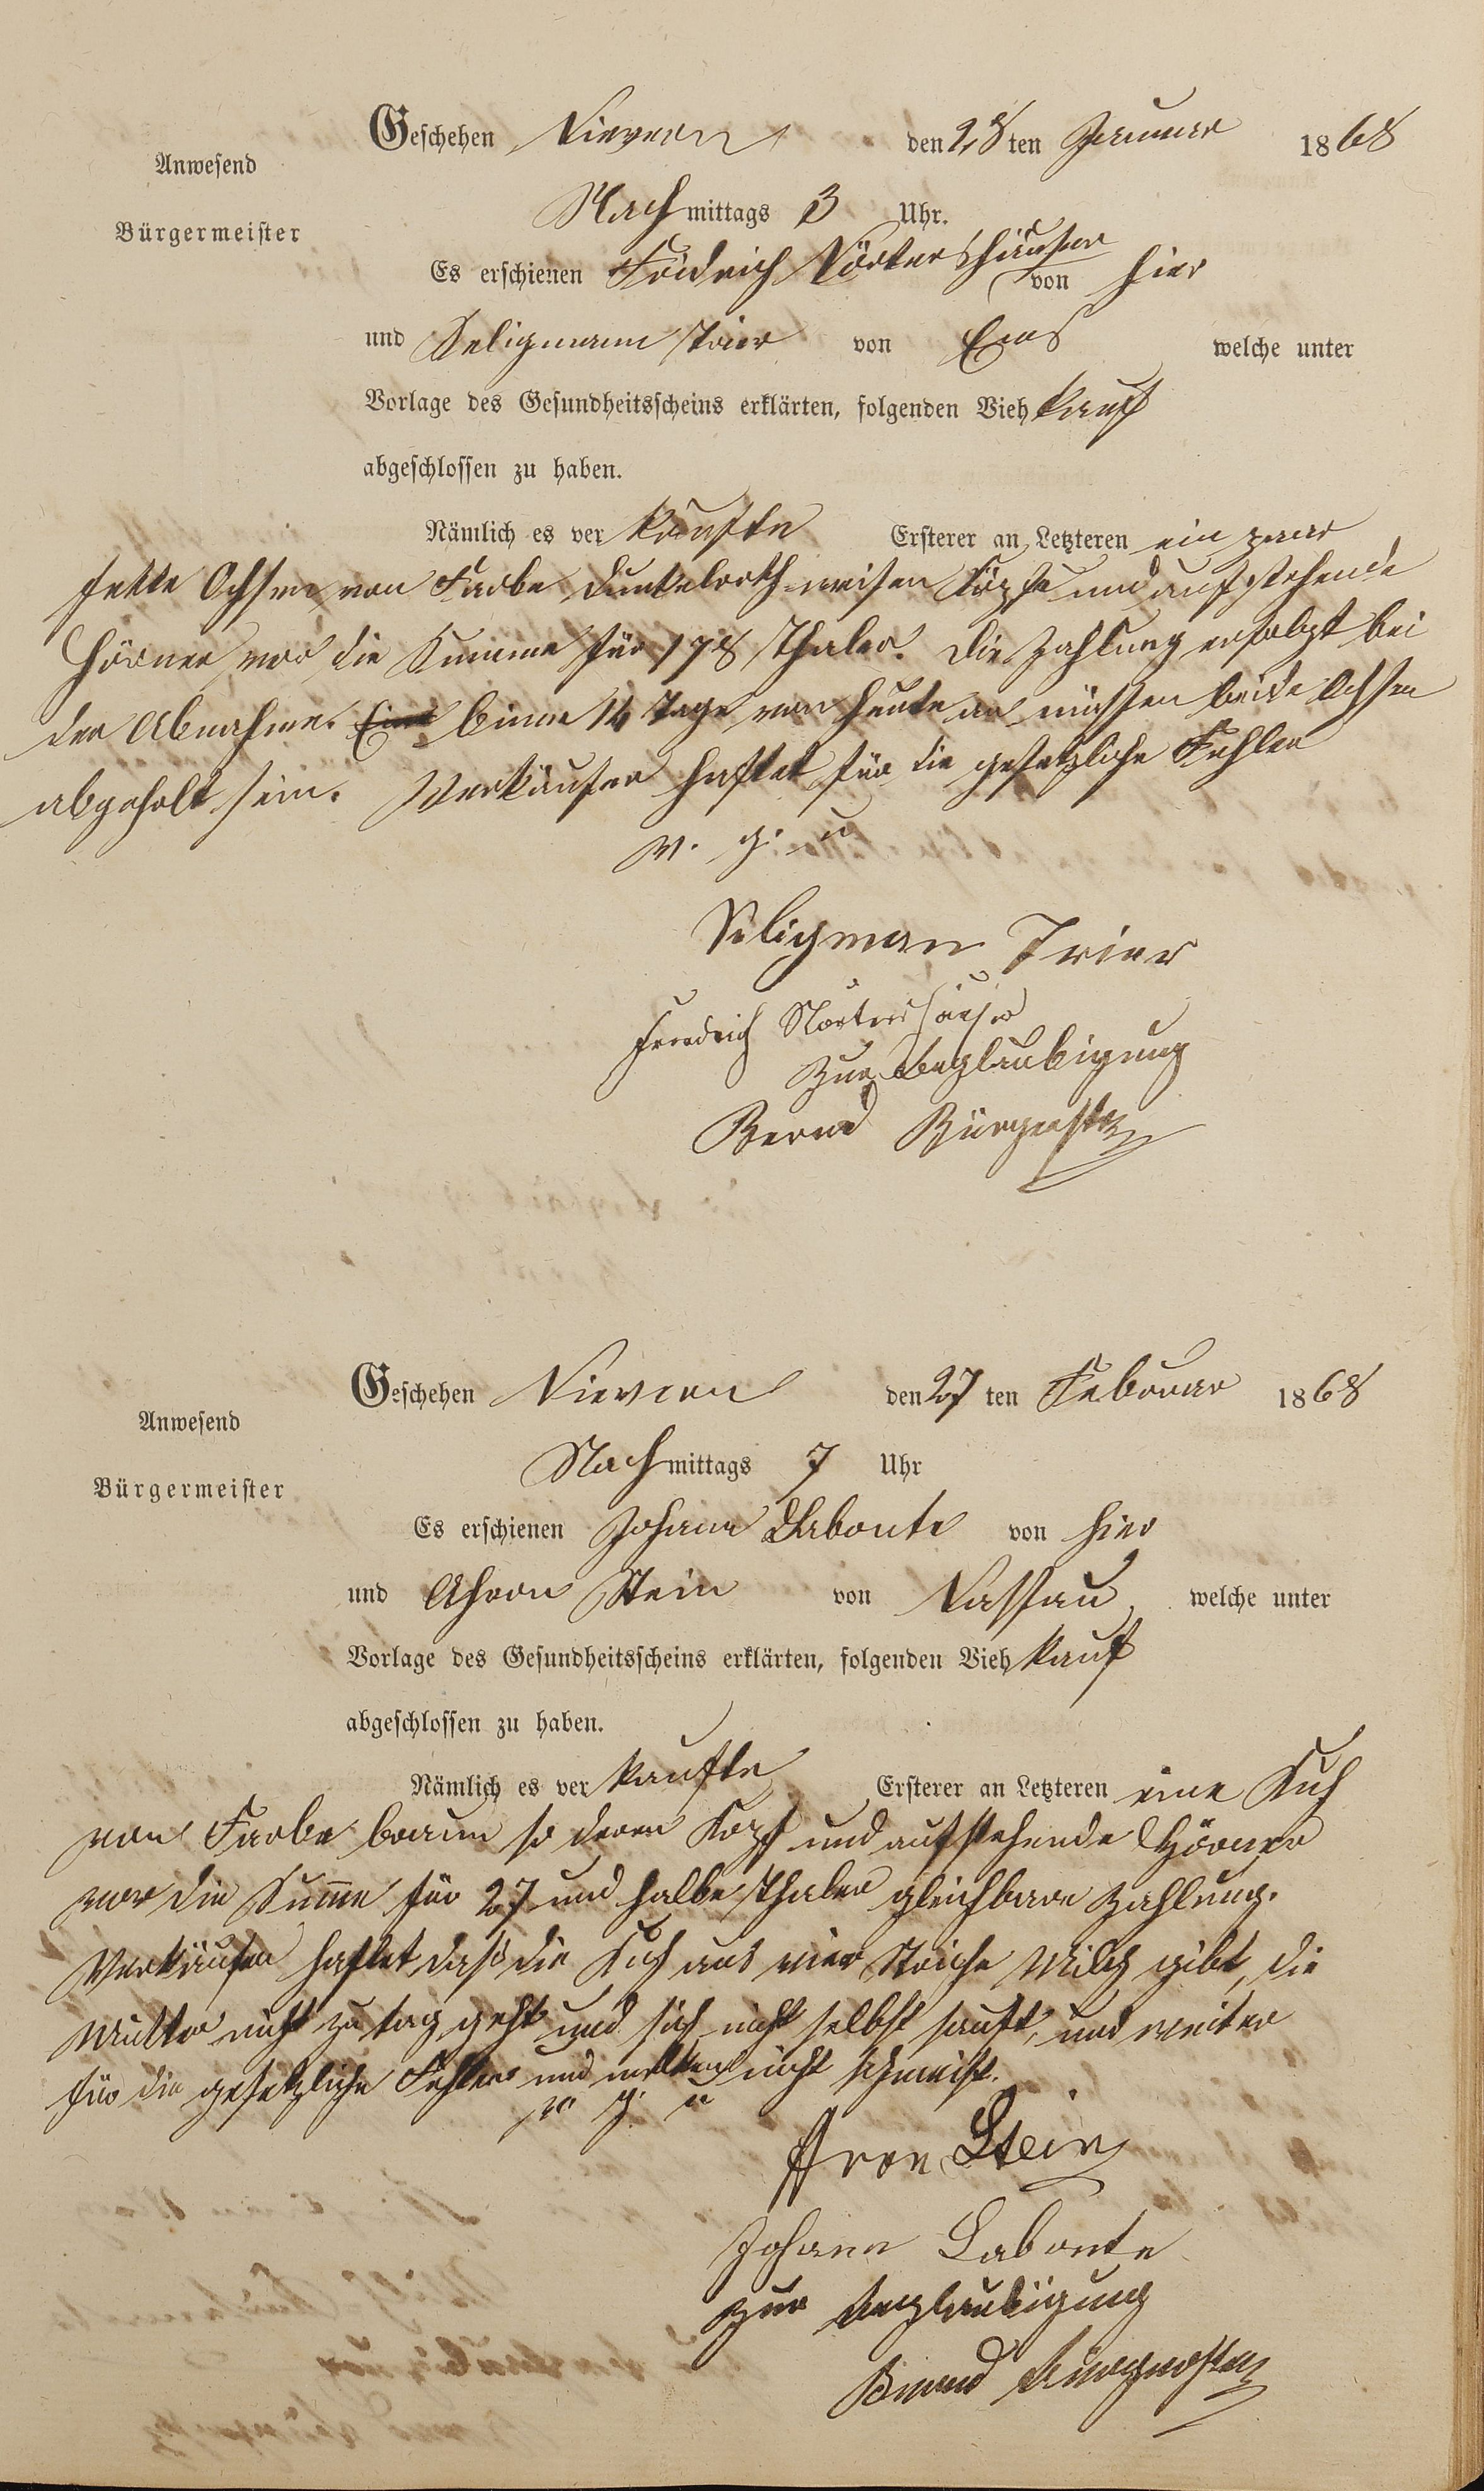 Geschehen Nievern den 28 ten Januar 1868
Anwesend
Bürgermeister
Nachmittags 3 Uhr.
Es erschienen Friedrich Nörtershäuser von hier
und Seligmann Trier von Ems welche unter
Vorlage des Gesundheitsscheins erklärten, folgenden Viehkauf
abgeschlossen zu haben.
Nämlich es verkaufte Ersterer an Letzteren ein paar
fette Ochsen von Farbe dunkelroth weisen Köpfe und aufstehende
Hörner vor die Summe für 178 Thaler. Die Zahlung erfolgt bei
der Abnahme. binne 14 Tage von heute an müssen beide Ochsen
abgeholt sein. Verkäufer haftet für die gesetzliche Fehler
v. g. u
Seligman Trier
Friedrich Nörtershäuser
Zur Beglaubigung
Bernd Bürgermstr
Geschehen Nievern den 27 ten Februar 1868
Anwesend
Bürgermeister
Nachmittags 7 Uhr
Es erschienen Johann Labonte von hier
und Ahron Stein von Nassau welche unter
Vorlage des Gesundheitsscheins erklärten, folgenden Viehkauf
abgeschlossen zu haben.
Nämlich es verkaufte Ersterer an Letzteren eine Kuh
von Farbe braun so deren Kopf und aufstehende Hörner
vor die Summe für 27 und halbe Thaler gleichbare Zahlung.
Verkäufer haftet daß die Kuh aus vier Striche Milch gibt, die
Mutter nicht zu tag geht und sich nicht selbst sauft, und weiter
für die gesetzliche Fehler und melken nicht schmeist.
v g. u
Aron Stein
Johann Labonte
Zur Beglaubigung
Bernd Bürgermstr